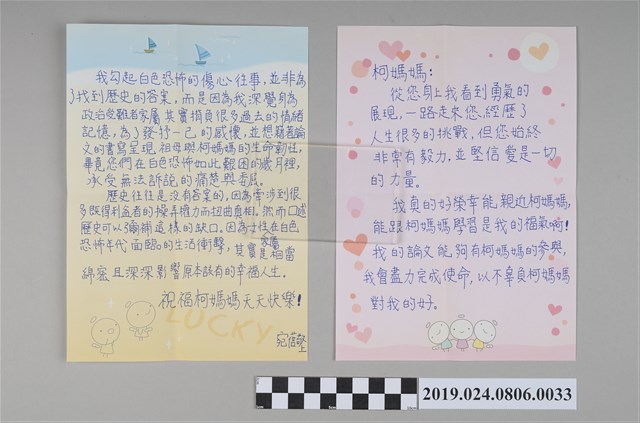 柯媽媽：
從您身上我看到勇氣的
展現，一路走來您經歷了
人生很多的挑戰，但您始終
非常有毅力，並堅信愛是一切
的力量。
我真的好榮幸能，親近柯媽媽，
能跟柯媽媽學習是我的福氣啊！
我的論文能夠有柯媽媽的參與，
我會盡力完成使命，以不辜負柯媽媽
對我的好。
我勾起白色恐怖的傷心往事，並非為
了找到歷史的答案，而是因為我深覺身為
政治受難者家屬其實揹負很多過去的情緒
記憶，為了發抒一己的感懷，並想藉著論
文的書寫呈現祖母與柯媽媽的生命韌性，
畢竟您們在白色恐怖如此艱困的歲月裡，
承受無法訴說的痛楚與委屈。
歷史往往是沒有答案的，因為牽涉到很
多既得利益者的操弄權力而扭曲真相。然而口述
歷史可以彌補這樣的缺口。因為女性在白色
恐怖年代面臨的生活衝擊，其實家屬是相當
綿密且深深影響原本該有的幸福人生。
祝福柯媽媽天天快樂！
LUCKY
2019.024.0806.0033